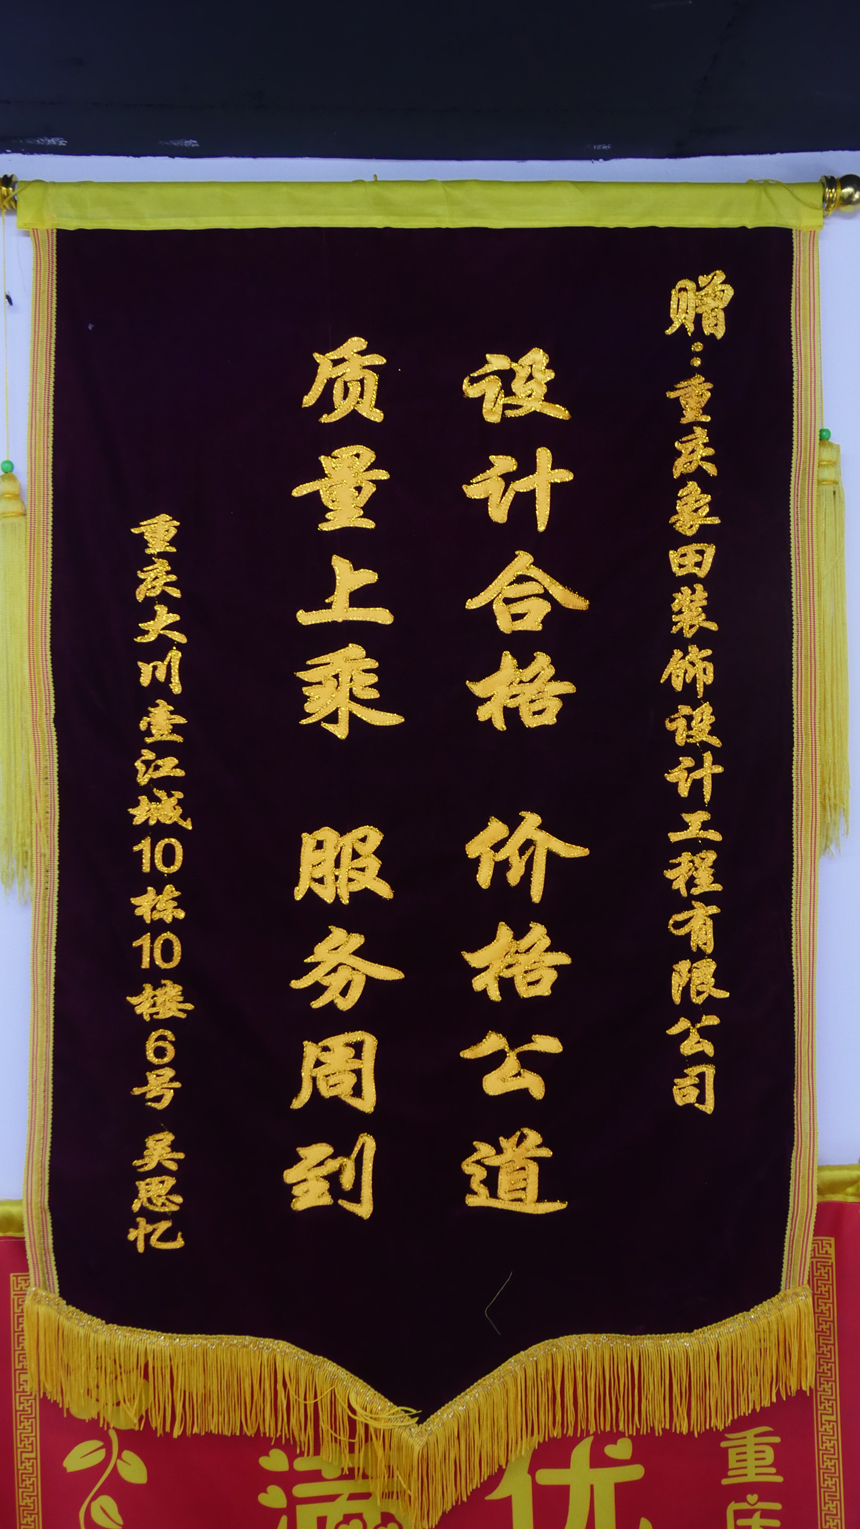 赠：重庆象田装饰设计工程有限公司
设计合格 价格公道
质量上乘 服务周到
重庆大川壹江城10栋10楼6号 吴思忆
重庆
优
满